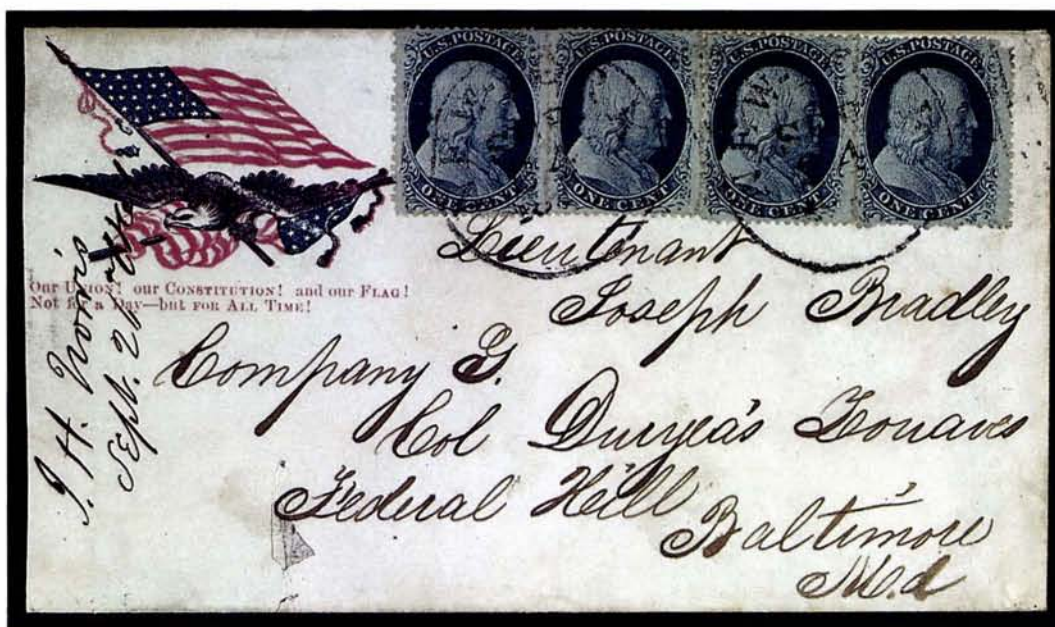 U.S. POSTAGE
ONE CENT
U.S. POSTAGE
ONE CENT
U.S. POSTAGE
ONE CENT
U.S. POSTAGE
ONE CENT
OUR UNION! OUR CONSTITUTION! and our FLAG!
Not for a Day—but FOR ALL TIME!
Lieutenant
Joseph Bradley
Company G.
Col Duryea's Zouaves
Federal Hill
Baltimore
Md
J. H. Norris
Sept. 21